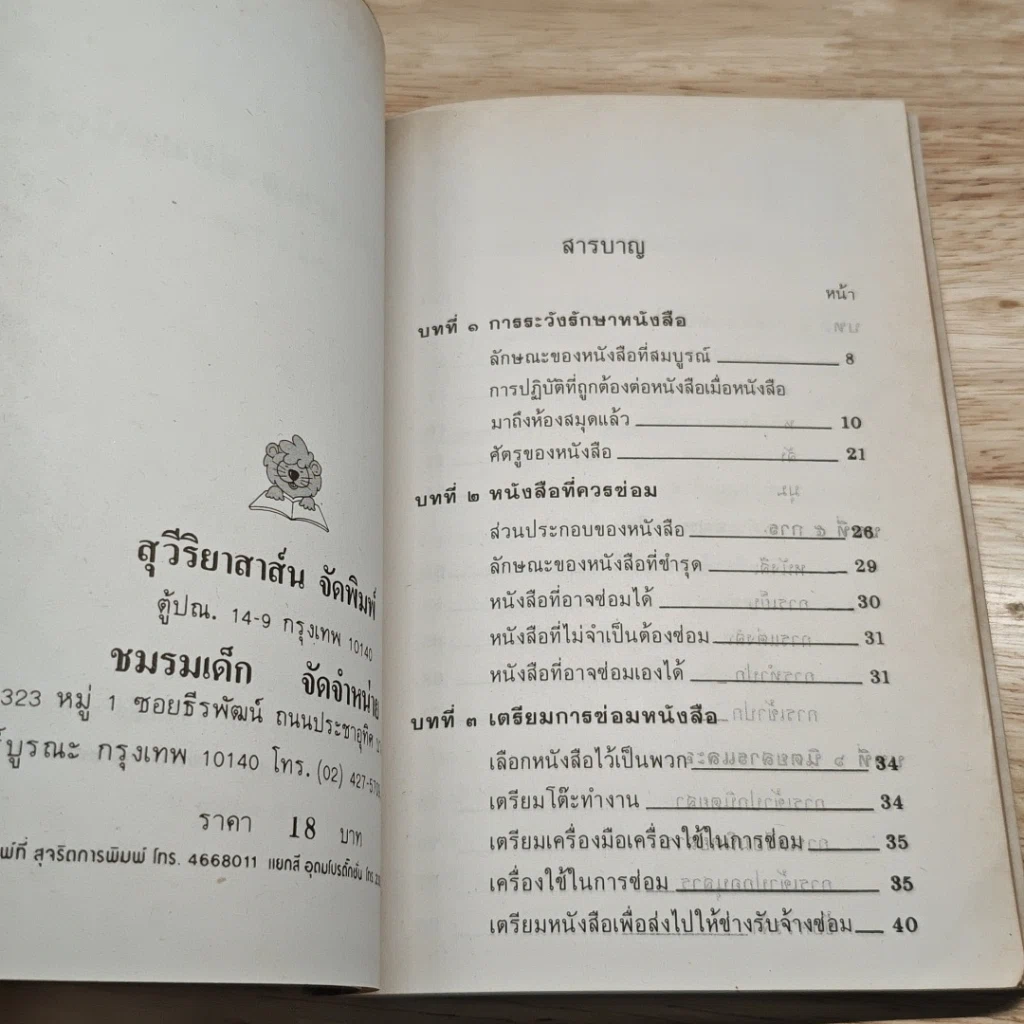 สุวีริยาสาส์น จัดพิมพ์
ตู้ปณ. 14-9 กรุงเทพ 10140
ชมรมเด็ก จัดจำหน่าย
323 หมู่ 1 ซอยธีรพัฒน์ ถนนประชาอุทิศ
บูรณะ กรุงเทพ 10140 โทร. (02)
ราคา 18 บาท
สุจริตการพิมพ์ โทร. 4668011 แยกสี อุดมโปรดั๊กชั่น โทร
สารบาญ
หน้า
บทที่ ๑ การระวังรักษาหนังสือ
ลักษณะของหนังสือที่สมบูรณ์ 8
การปฏิบัติที่ถูกต้องต่อหนังสือเมื่อหนังสือ
มาถึงห้องสมุดแล้ว 10
ศัตรูของหนังสือ 21
บทที่ ๒ หนังสือที่ควรซ่อม
ส่วนประกอบของหนังสือ 26
ลักษณะของหนังสือที่ชำรุด 29
หนังสือที่อาจซ่อมได้ 30
หนังสือที่ไม่จำเป็นต้องซ่อม 31
หนังสือที่อาจซ่อมเองได้ 31
บทที่ ๓ เตรียมการซ่อมหนังสือ
เลือกหนังสือไว้เป็นพวก 34
เตรียมโต๊ะทำงาน 34
เตรียมเครื่องมือเครื่องใช้ในการซ่อม 35
เครื่องใช้ในการซ่อม 35
เตรียมหนังสือเพื่อส่งไปให้ช่างรับจ้างซ่อม 40